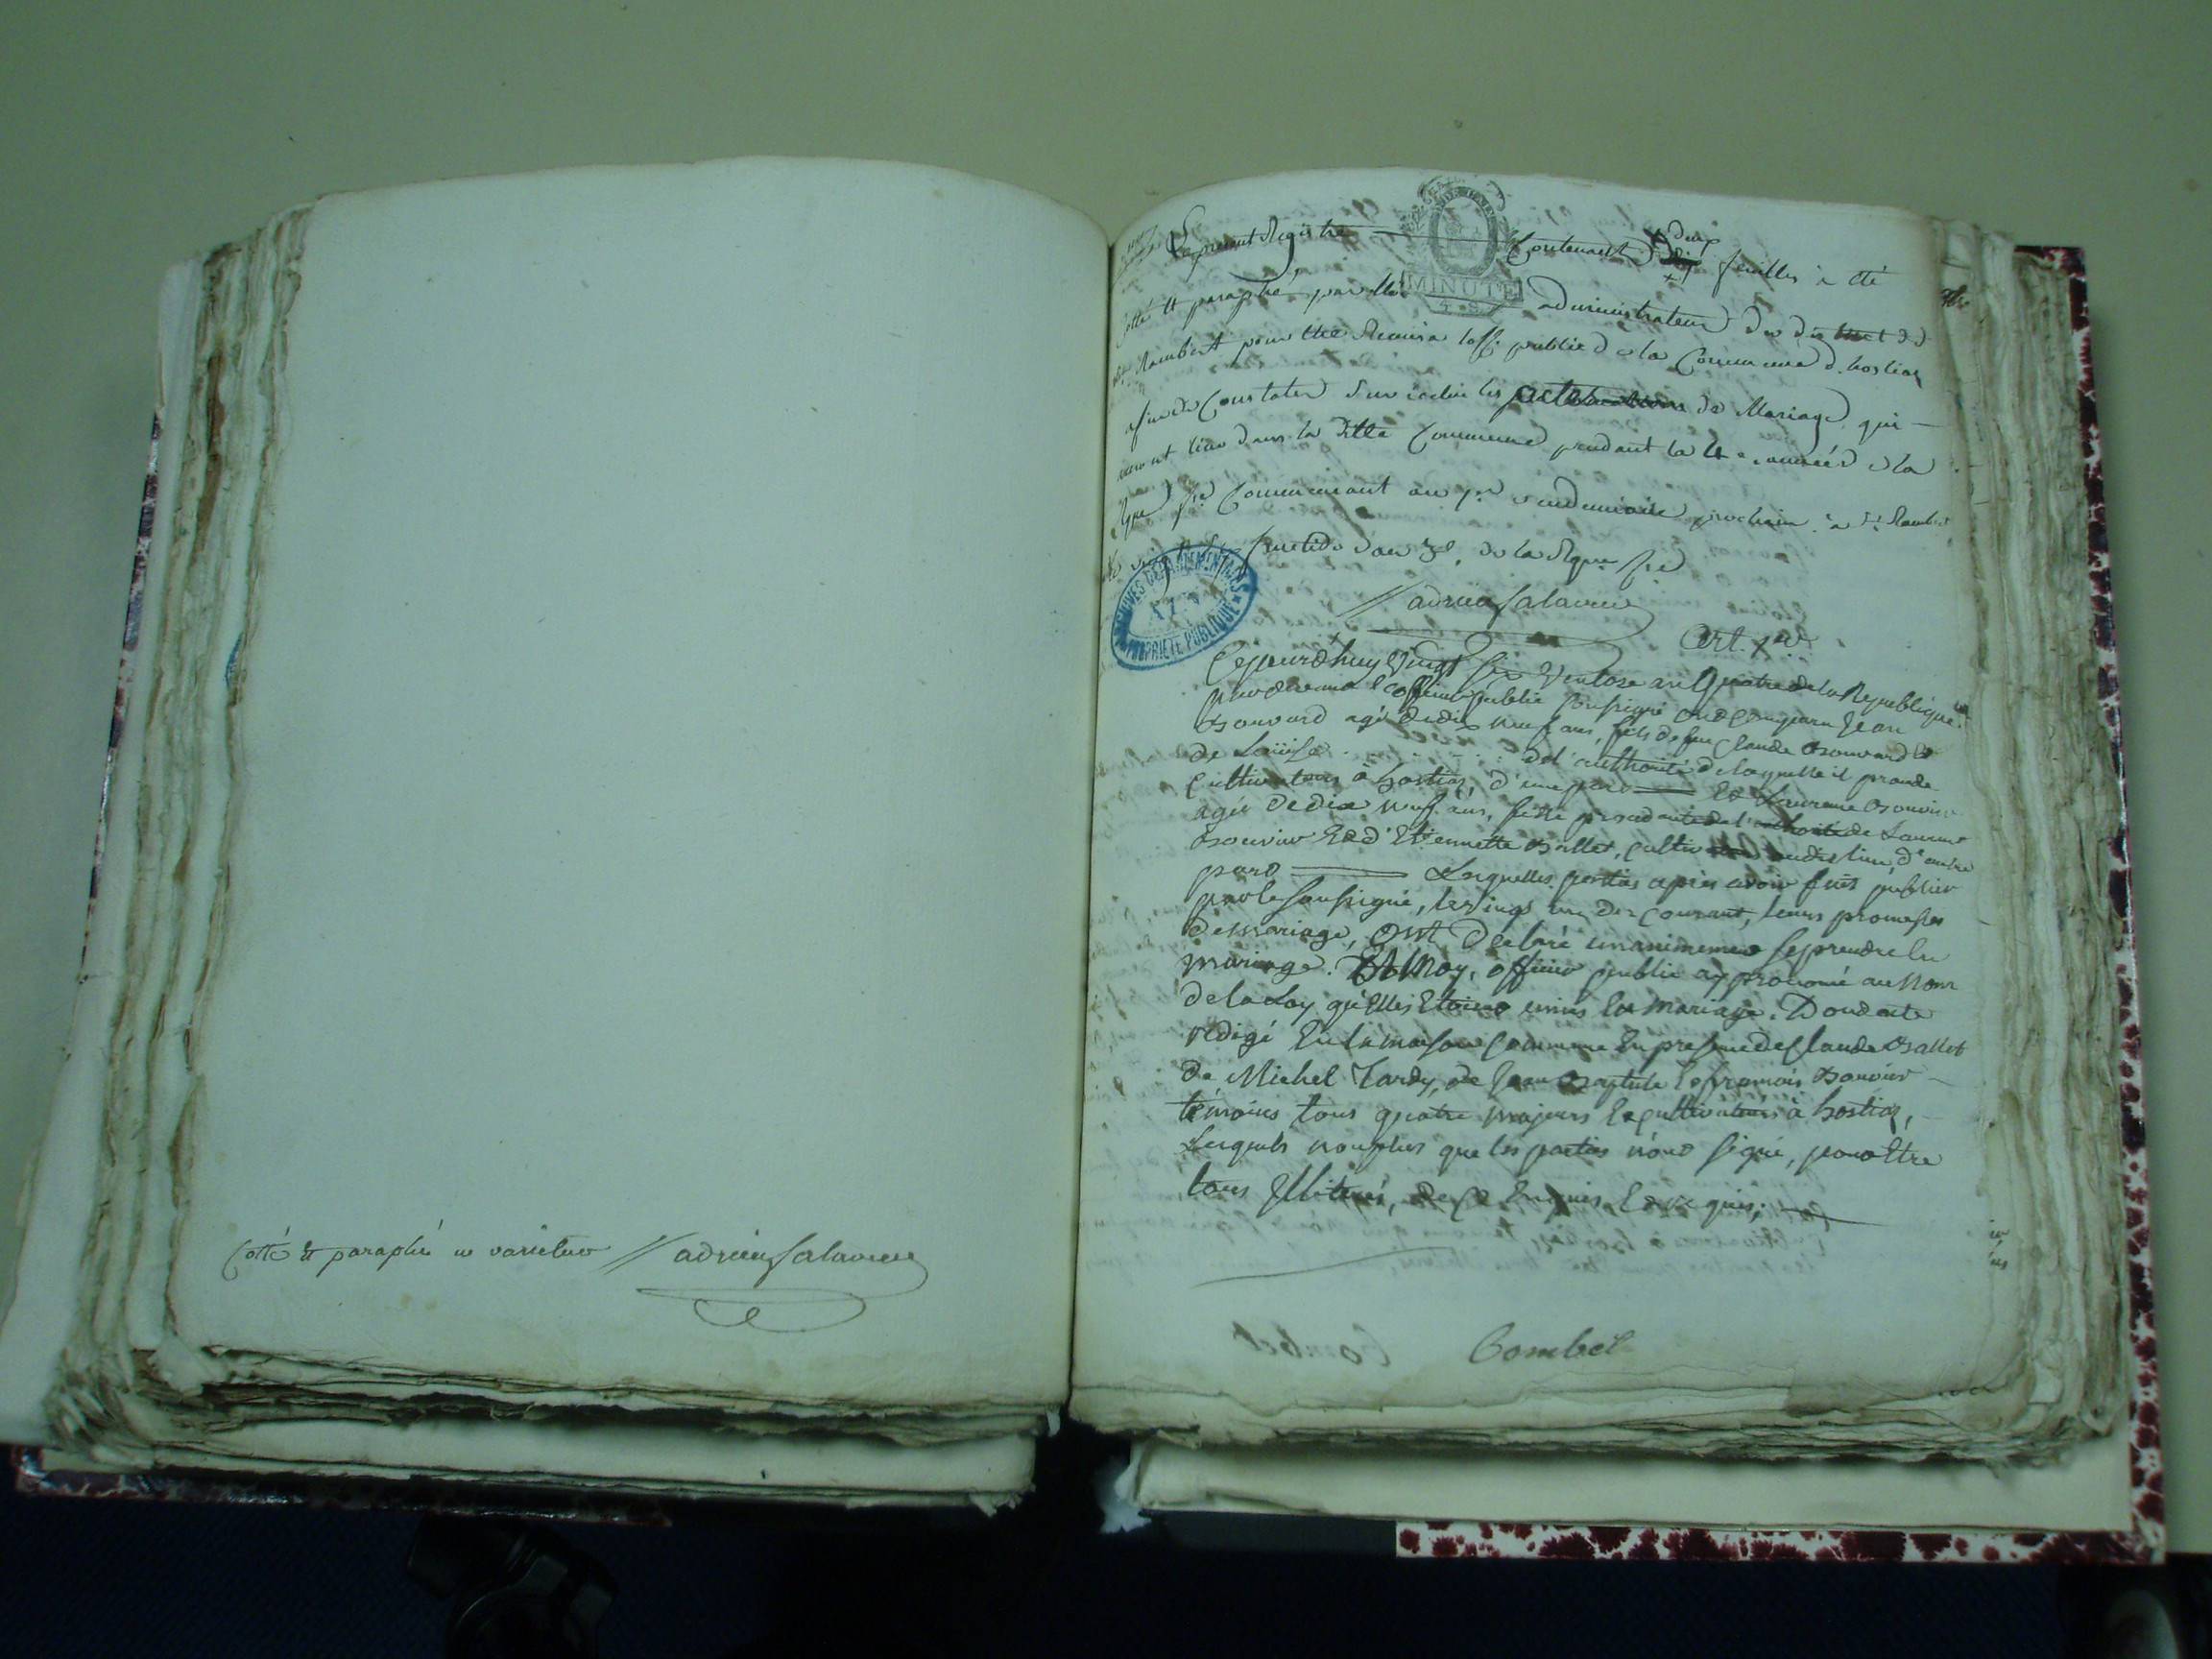 Cotté et paraphé ne varietur adrien Salavin
Le present Registre contenant deux feuilles a été
cotté et paraphé, par administrateur du district de
Rambert pour etre Remis a loff. public de la Commune d. hostiaz
afin de Constater Sur icelui les actes de Mariage qui
auront lieu dans la ditte Commune pendant la 4e. année de la
Rque fse Commencant au 1er vendemiaire prochain. a St Rambert
fructidor dan 3e. de la Rque fse
adrien Salavin
MINUTE
ARCHIVES DEPARTEMENTALES
PROPRIETE PUBLIQUE
art. 1er
Cejourdhuy Vingt Six Ventose an Quatre de la Republique
pardevant l'officier public soussigné ont comparu Jean
Bouvard agé de dix neuf ans, fils de feu Claude Bouvard et
de Loüise de l'authorité de laquelle il procede
Cultivateurs à hostiaz, d'une part et Laurence Bouvier
agée de dix neuf ans, fille procedante de l'authorité de Laurent
Bouvier et d'Etiennette Ballet, cultiv audit lieu, d'autre
part Lesquelles parties après avoir fait publier
par le soussigné, le vingt un du courant, leurs promesses
de mariage, ont declaré unanimement se prendre en
mariage. Et Moy, officier public ay prononcé au Nom
de la Loy qu'Elles Etoient unies en mariage. Dont acte
redigé En la maison Commune En presence de Claude Ballet
de Michel Tardy, de Jean Baptiste et francois Bouvier
témoins tous quatre majeurs et cultivateurs à hostiaz,
Lesquels non plus que les parties n'ont signé, pour Etre
tous Illiterés, de ce Enquis et requis;
Combet